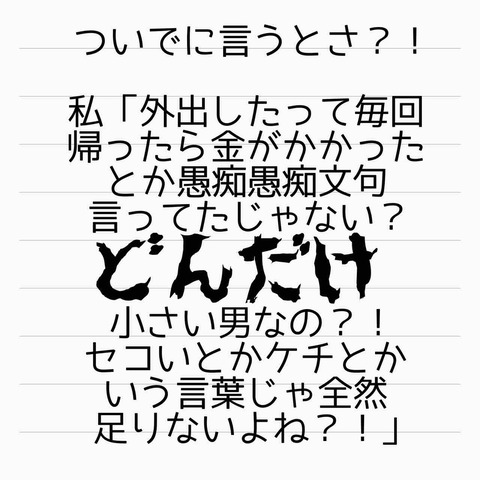 ついでに言うとさ？！
私「外出したって毎回
帰ったら金がかかった
とか愚痴愚痴文句
言ってたじゃない？
どんだけ
小さい男なの？！
セコいとかケチとか
いう言葉じゃ全然
足りないよね？！」